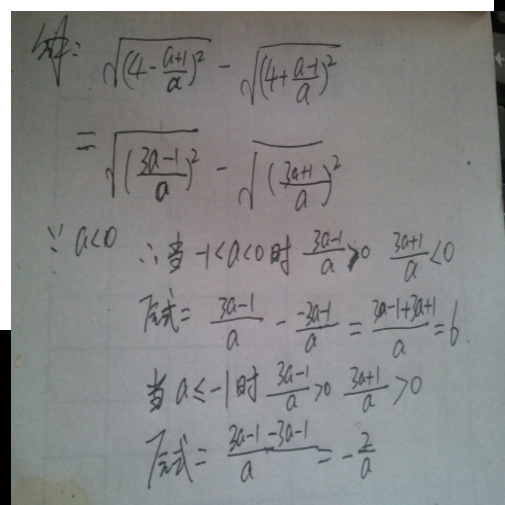 解: √(4-(a+1)/a)² - √(4+(a-1)/a)²
= √((3a-1)/a)² - √((3a+1)/a)²
∵ a<0 ∴当 -1<a<0时 (3a-1)/a>0 (3a+1)/a<0
原式= (3a-1)/a - (-3a-1)/a = (3a-1+3a+1)/a = 6
当 a≤-1时 (3a-1)/a>0 (3a+1)/a>0
原式= (3a-1-3a-1)/a = -2/a